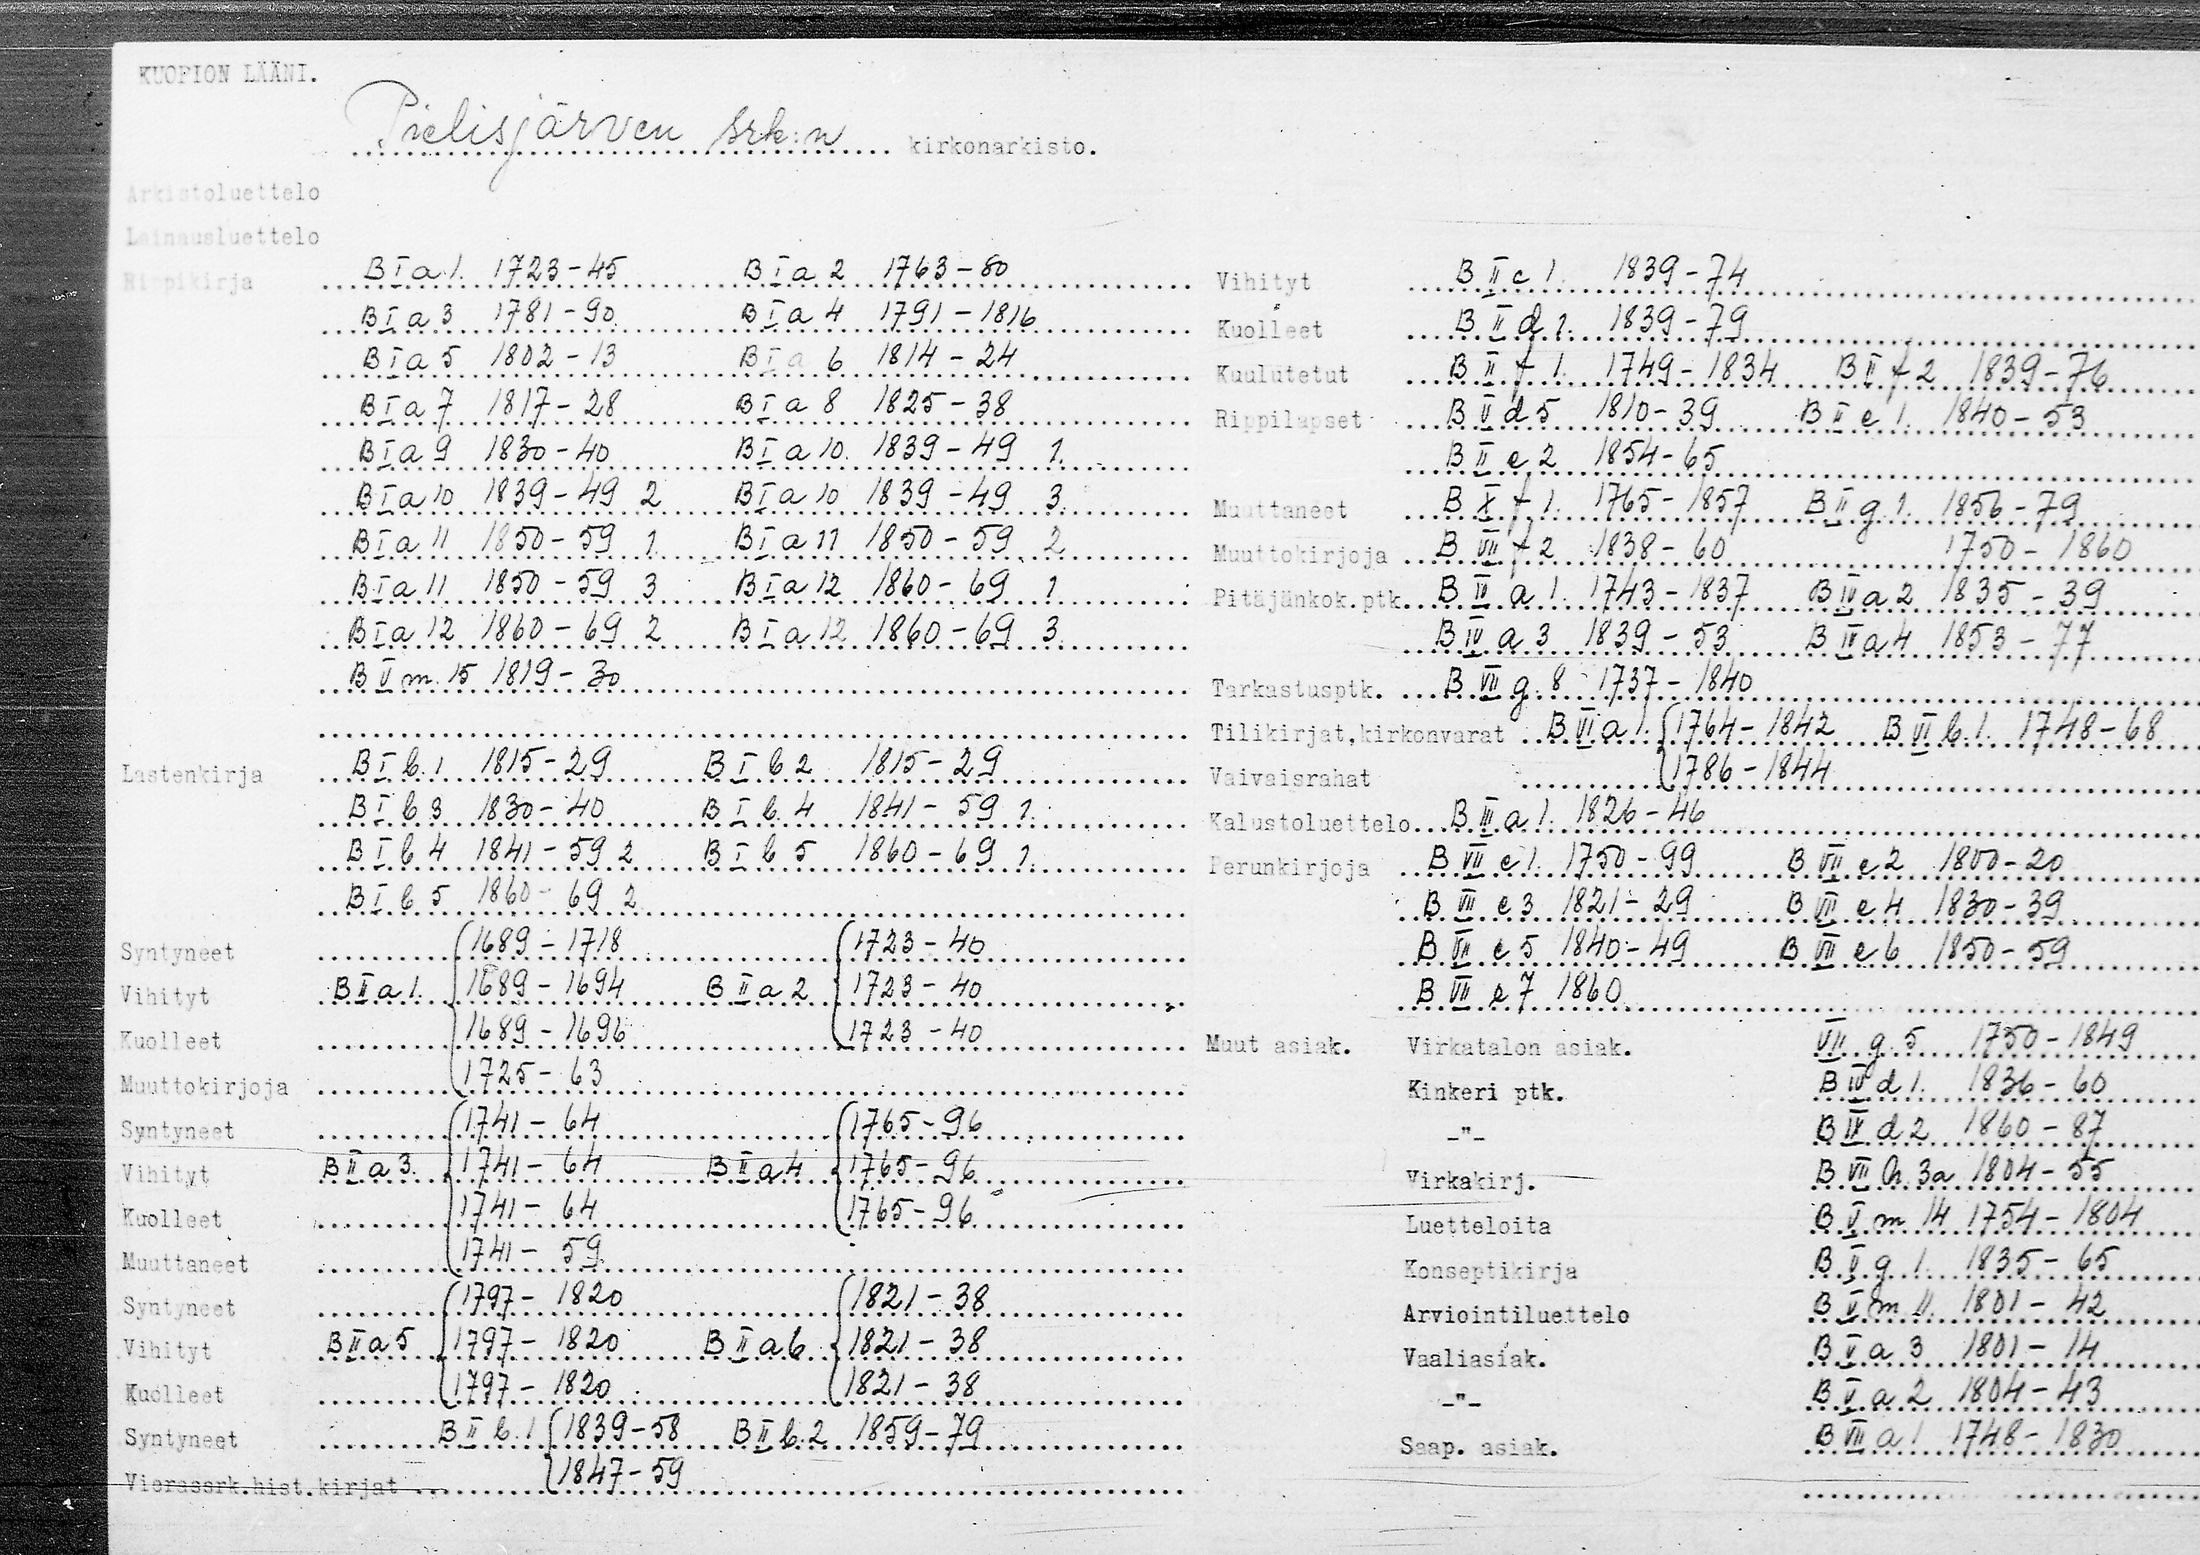 KUOPION LÄÄNI.
Pielisjärven srk:n kirkonarkisto.
Arkistoluettelo
Lainausluettelo
Rippikirja B I a 1. 1723-45 B I a 2 1763-80
B I a 3 1781-90 B I a 4 1791-1816
B I a 5 1802-13 B I a 6 1814-24
B I a 7 1817-28 B I a 8 1825-38
B I a 9 1830-40 B I a 10. 1839-49 1.
B I a 10 1839-49 2 B I a 10 1839-49 3
B I a 11 1850-59 1 B I a 11 1850-59 2
B I a 11 1850-59 3 B I a 12 1860-69 1
B I a 12 1860-69 2 B I a 12 1860-69 3
B V m. 15 1819-30
Lastenkirja B I b. 1 1815-29 B I b 2 1815-29
B I b 3 1830-40 B I b. 4 1841-59 1.
B I b 4 1841-59 2 B I b 5 1860-69 1.
B I b 5 1860-69 2
Syntyneet 1689-1718 1723-40
Vihityt B II a 1. 1689-1694 B II a 2 1723-40
Kuolleet 1689-1696 1723-40
Muuttokirjoja 1725-63
Syntyneet 1741-64 1765-96
Vihityt B II a 3. 1741-64 B II a 4 1765-96
Kuolleet 1741-64 1765-96
Muuttaneet 1741-59
Syntyneet 1797-1820 1821-38
Vihityt B II a 5 1797-1820 B II a 6 1821-38
Kuolleet 1797-1820 1821-38
Syntyneet B II b. 1 1839-58 B II b. 2 1859-79
Vierassrk.hist.kirjat 1847-59
Vihityt B II c 1. 1839-74
Kuolleet B II d 1. 1839-79
Kuulutetut B II f 1. 1749-1834 B II f 2 1839-76
Rippilapset B V d 5 1810-39 B II e 1. 1840-53
B II e 2 1854-65
Muuttaneet B X f 1. 1765-1857 B II g. 1. 1856-79
Muuttokirjoja B VII f 2 1838-60 1750-1860
Pitäjänkok.ptk. B IV a 1. 1743-1837 B IV a 2 1835-39
B IV a 3 1839-53 B IV a 4 1853-77
Tarkastusptk. B VII g. 8 1737-1840
Tilikirjat,kirkonvarat B VI a 1. 1764-1842 B VI b. 1. 1748-68
Vaivaisrahat 1786-1844
Kalustoluettelo B III a 1. 1826-46
Perunkirjoja B VII e 1. 1750-99 B VII e 2 1800-20
B VII e 3 1821-29 B VII e 4 1830-39
B VII e 5 1840-49 B VII e 6 1850-59
B VII e 7 1860
Muut asiak. Virkatalon asiak. VII g. 5 1750-1849
Kinkeri ptk. B IV d 1. 1836-60
-"- B IV d 2 1860-87
Virkakirj. B VII h. 3a 1804-55
Luetteloita B V m 14 1754-1804
Konseptikirja B V g 1. 1835-65
Arviointiluettelo B V m 11. 1801-42
Vaaliasiak. B V a 3 1801-14
-"- B V a 2 1804-43
Saap. asiak. B VII a 1 1748-1830